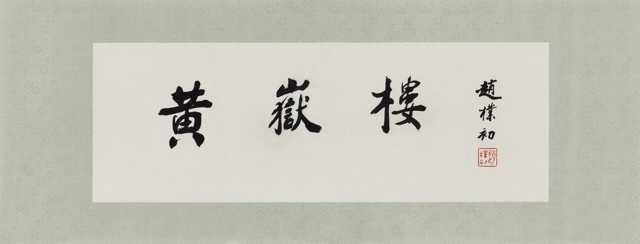 黄嶽樓
趙樸初